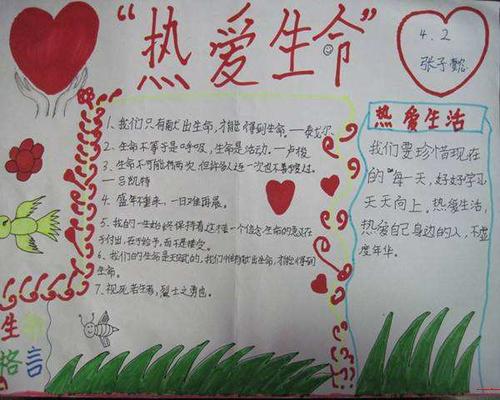 “热爱生命”
4.2
张子懿
1、我们只有献出生命,才能得到生命。——泰戈尔
2、生命不等于是呼吸,生命是活动。—卢梭
3、生命不可能有两次,但许多人连一次也不善于度过。
——吕凯特
4、盛年不重来,一日难再晨。
5、我的一生始终保持着这样一个信念:生命的意义在
于付出,在于给予,而不是接受。
6、我们的生命是天赋的,我们惟有献出生命,才能得到
生命。
7、视死若生者,烈士之勇也。
生命
格言
热爱生活
我们要珍惜现在
的每一天,好好学习
天天向上。热爱生活,
热爱自己身边的人,不虚
度年华。